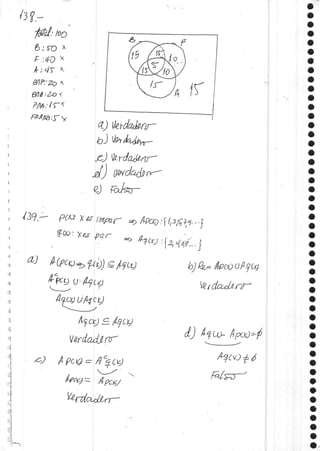 138.-
total: 100
B: 50 x
F: 40 x
A: 45 x
B∩F: 20
B∩A: 20
F∩A: 15
F∩A∩B: 5
B F
15 15 10
5
15 10
15 A 15
a) Verdadero
b) Verdadero
c) Verdadero
d) verdadero
e) Falso
139.- p(x): x es impar => Ap(x): {1,3,5,7,9...}
q(x): x es par => Aq(x): {2,4,6,8...}
a) A(p(x) => q(x)) ⊆ Aq(x)
A^c p(x) ∪ Aq(x)
Aq(x) ∪ Aq(x)
Aq(x) ⊆ Aq(x)
Verdadero
b) Re = Ap(x) ∪ Aq(x)
Verdadero
c) Ap(x) = A^c q(x)
Ap(x) = Ap(x)
Verdadero
d) Aq(x) - Ap(x) = ϕ
Aq(x) ≠ ϕ
Falso